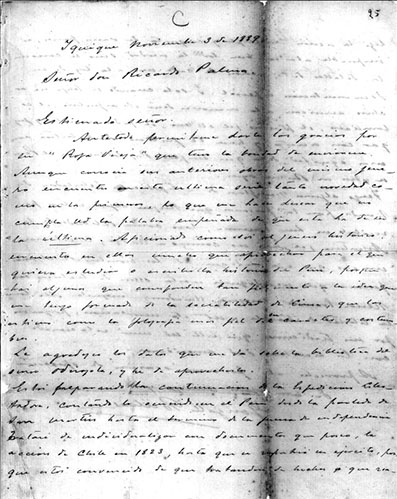 C
25
Iquique Noviembre 3 de 1889.
Señor don Ricardo Palma.
Estimado señor.
Antetodo permítame darle las gracias por
su "Ropa Vieja" que tuvo la bondad de enviarme
Aunque conocía sus anteriores obras del mismo géne-
ro encuentro en esta última serie tanta novedad co-
mo en la primera, lo que me hace desear que no
cumpla Ud la palabra empeñada de que esta ha de ser
la última. Aficionado como soi al jenero histórico
encuentro en ellas mucho que aprovechar para el que
quiera estudiar o escribir la historia del Perú, porque
hai algunas que corresponden tan fielmente a la idea que
yo tengo formada de la sociabilidad de Lima, que las
estimo como la fotografía mas fiel de su carácter, y costum
bres.
Le agradezco los datos que me da sobre la biblioteca del
señor Odriozola, y he de aprovecharlos.
Estoi preparando la continuacion de la Espedicion Liber
tadora, contando lo sucedido en el Perú desde la partida de
San Martín hasta el termino de la guerra de independencia
Trataré de individualizar con documentos que poseo, la
accion de Chile en 1823, hasta que se repatrió su ejército, por
que estoi convencido de que tratandose de hechos que